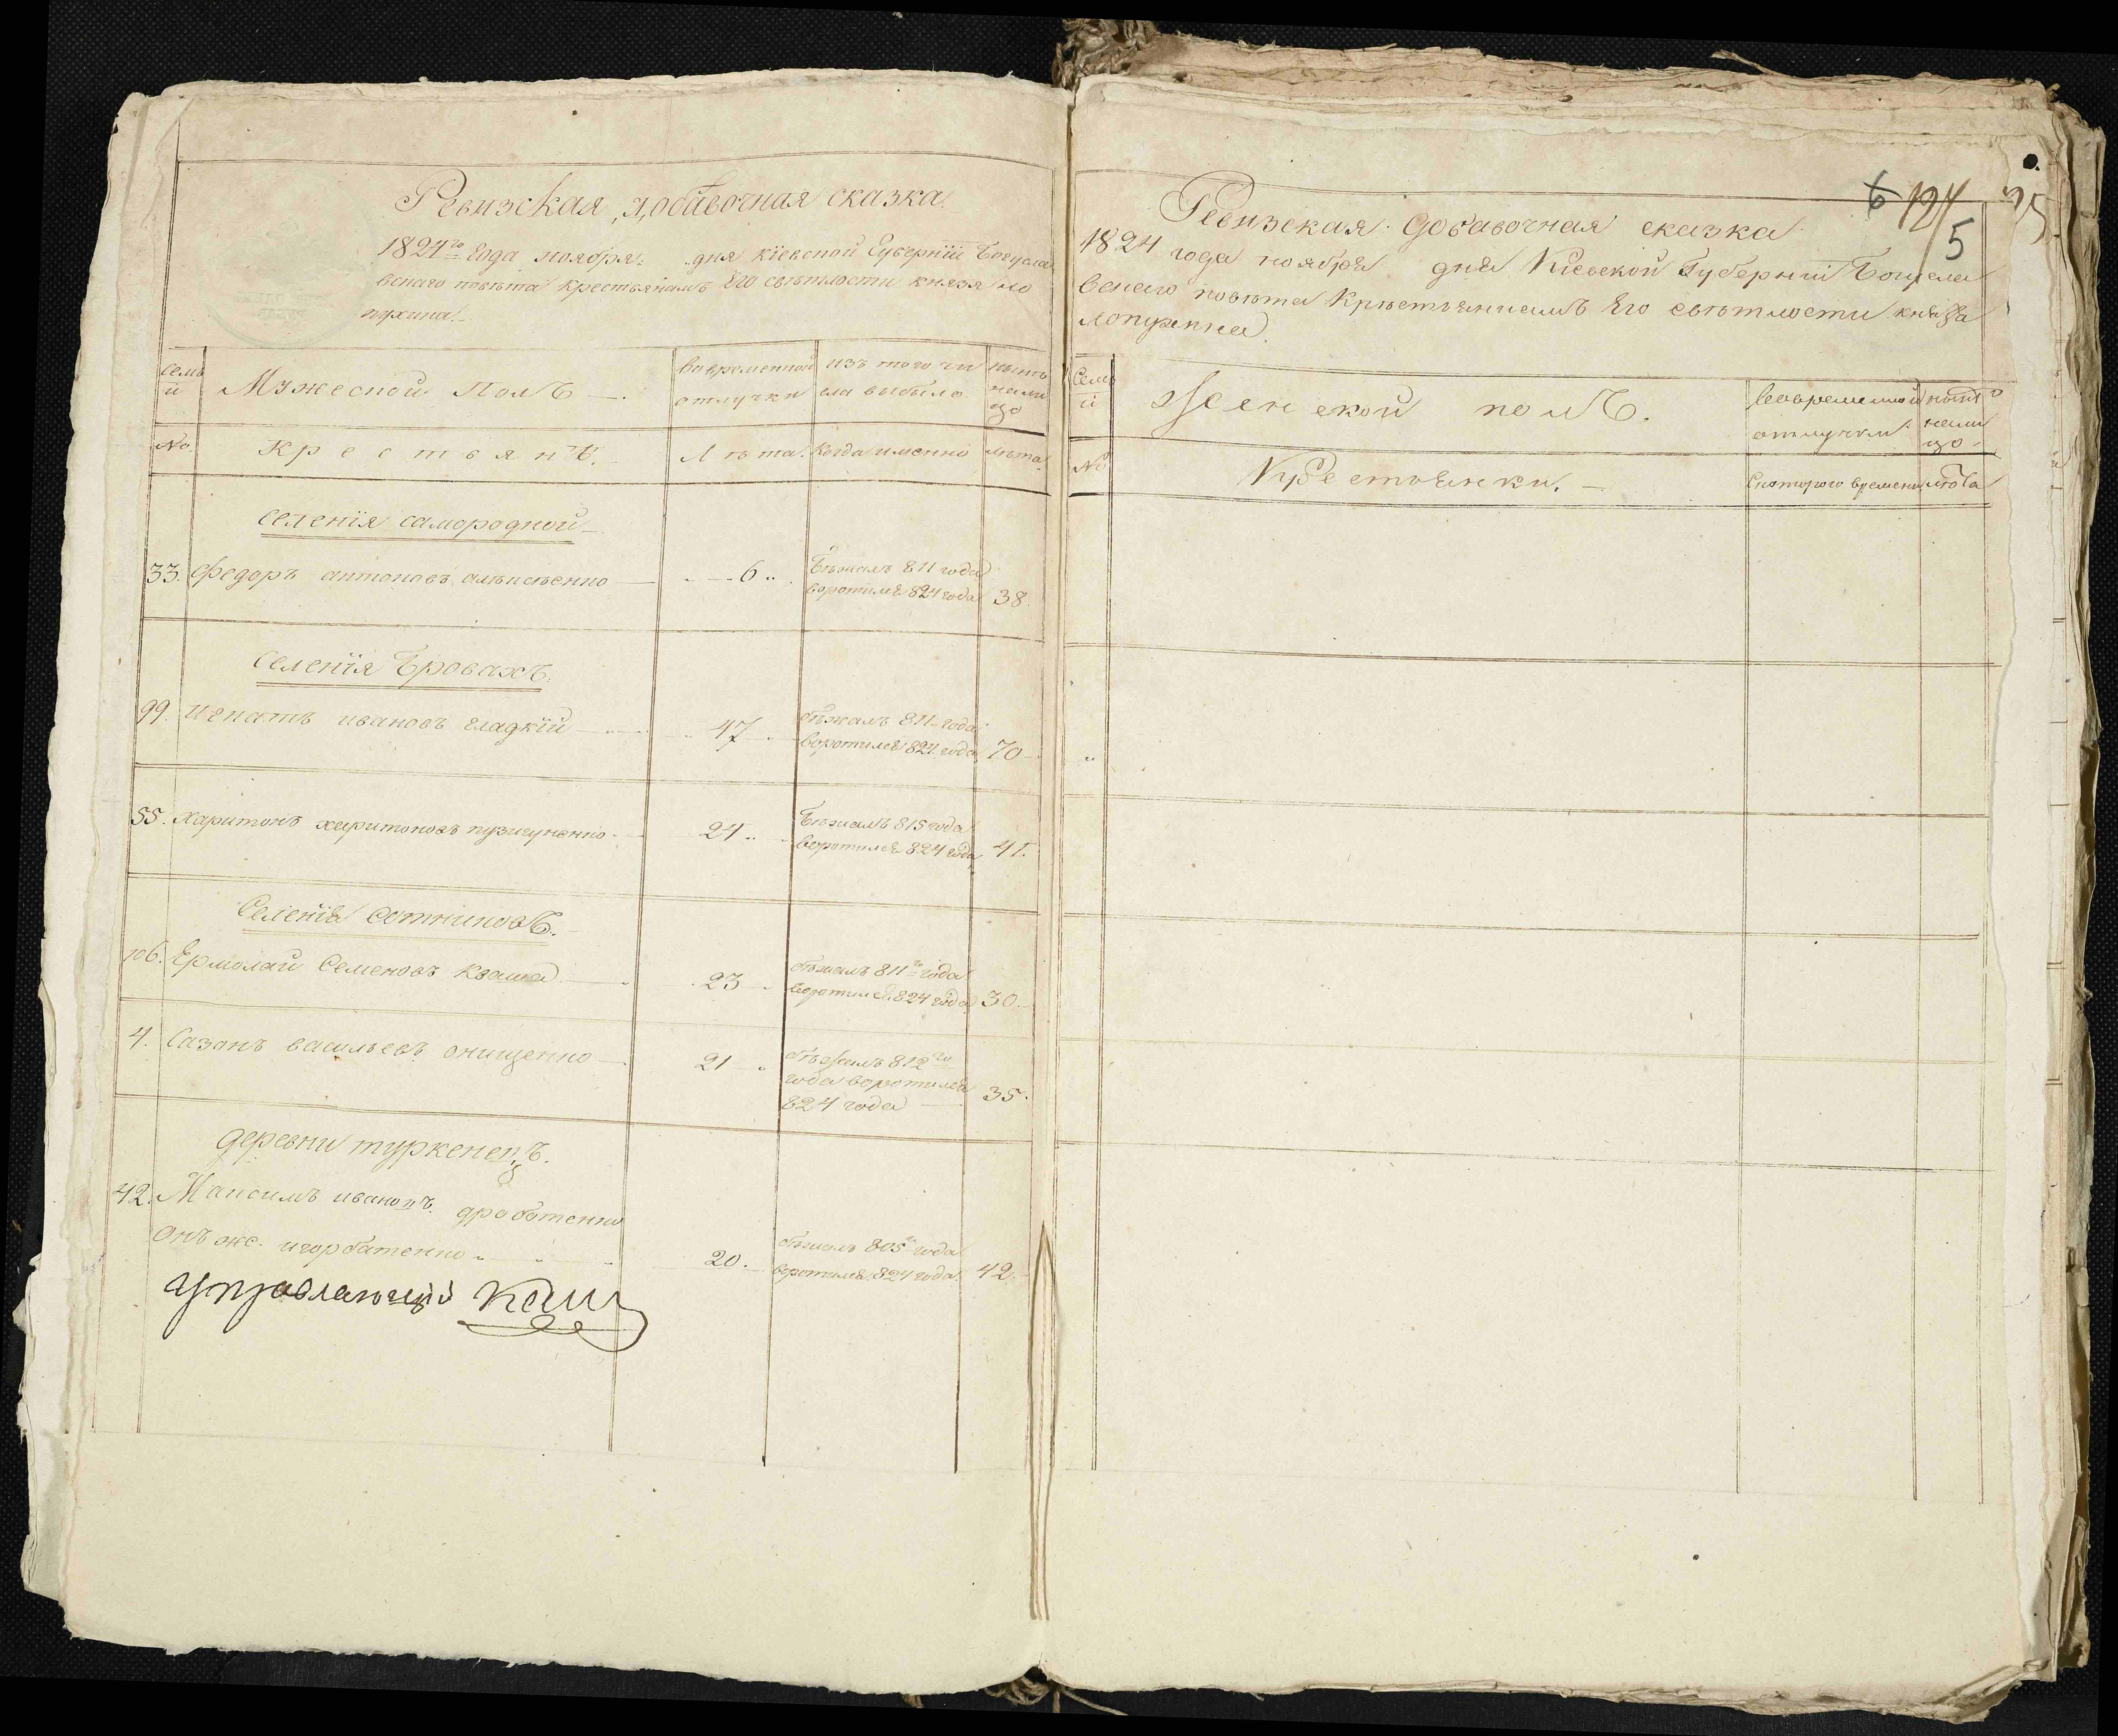 Ревизская добавочная сказка
1824го года ноября дня кіевской Губерніи Богусла
вскаго повѣта крестьянамъ Его свѣтлости князя ло
пухина.
семь
и
Мужеской Полъ
вовременной
отлучки
изъ того чи
сла выбыло
нынѣ
нали
цо
No
Крестьянѣ
Лѣта.
когда именно
лѣта.
селенія самородной
33. Федоръ антоновъ 6
Бѣжалъ 811 года
воротился 824 года 38
Селенія Бровахъ
99. Игнатъ ивановъ гладкій 47
бѣжалъ 811 года
воротился 824 года 70
55. Харитонъ харитоновъ 24
Бѣжалъ 815 года
воротился 824 года 41.
Селенія сотниковъ.
106. Ермолай Семеновъ Кваша 23
бѣжалъ 811го года
воротился 824 года 30
4. Сазонъ васильевъ онищенко 21
бѣжалъ 812го
года воротился
824 года 35.
деревни туркенепъ.
42. Максимъ ивановъ дработенко
онъ же. игорбатенко 20.
бѣжалъ 805го года
воротился 824 года 42.
управляющій
6 124 75
5
Ревизская добавочная сказка
1824 года ноября дня Кіевской Губерніи Богусла
вскаго повѣта Крѣстьянкамъ Его свѣтлости князя
Лопухина.
Семь
и
Женской полъ.
вовременной
отлучки
нынѣ
нали
цо
No
Крестьянки.
скоторого времени
лѣта